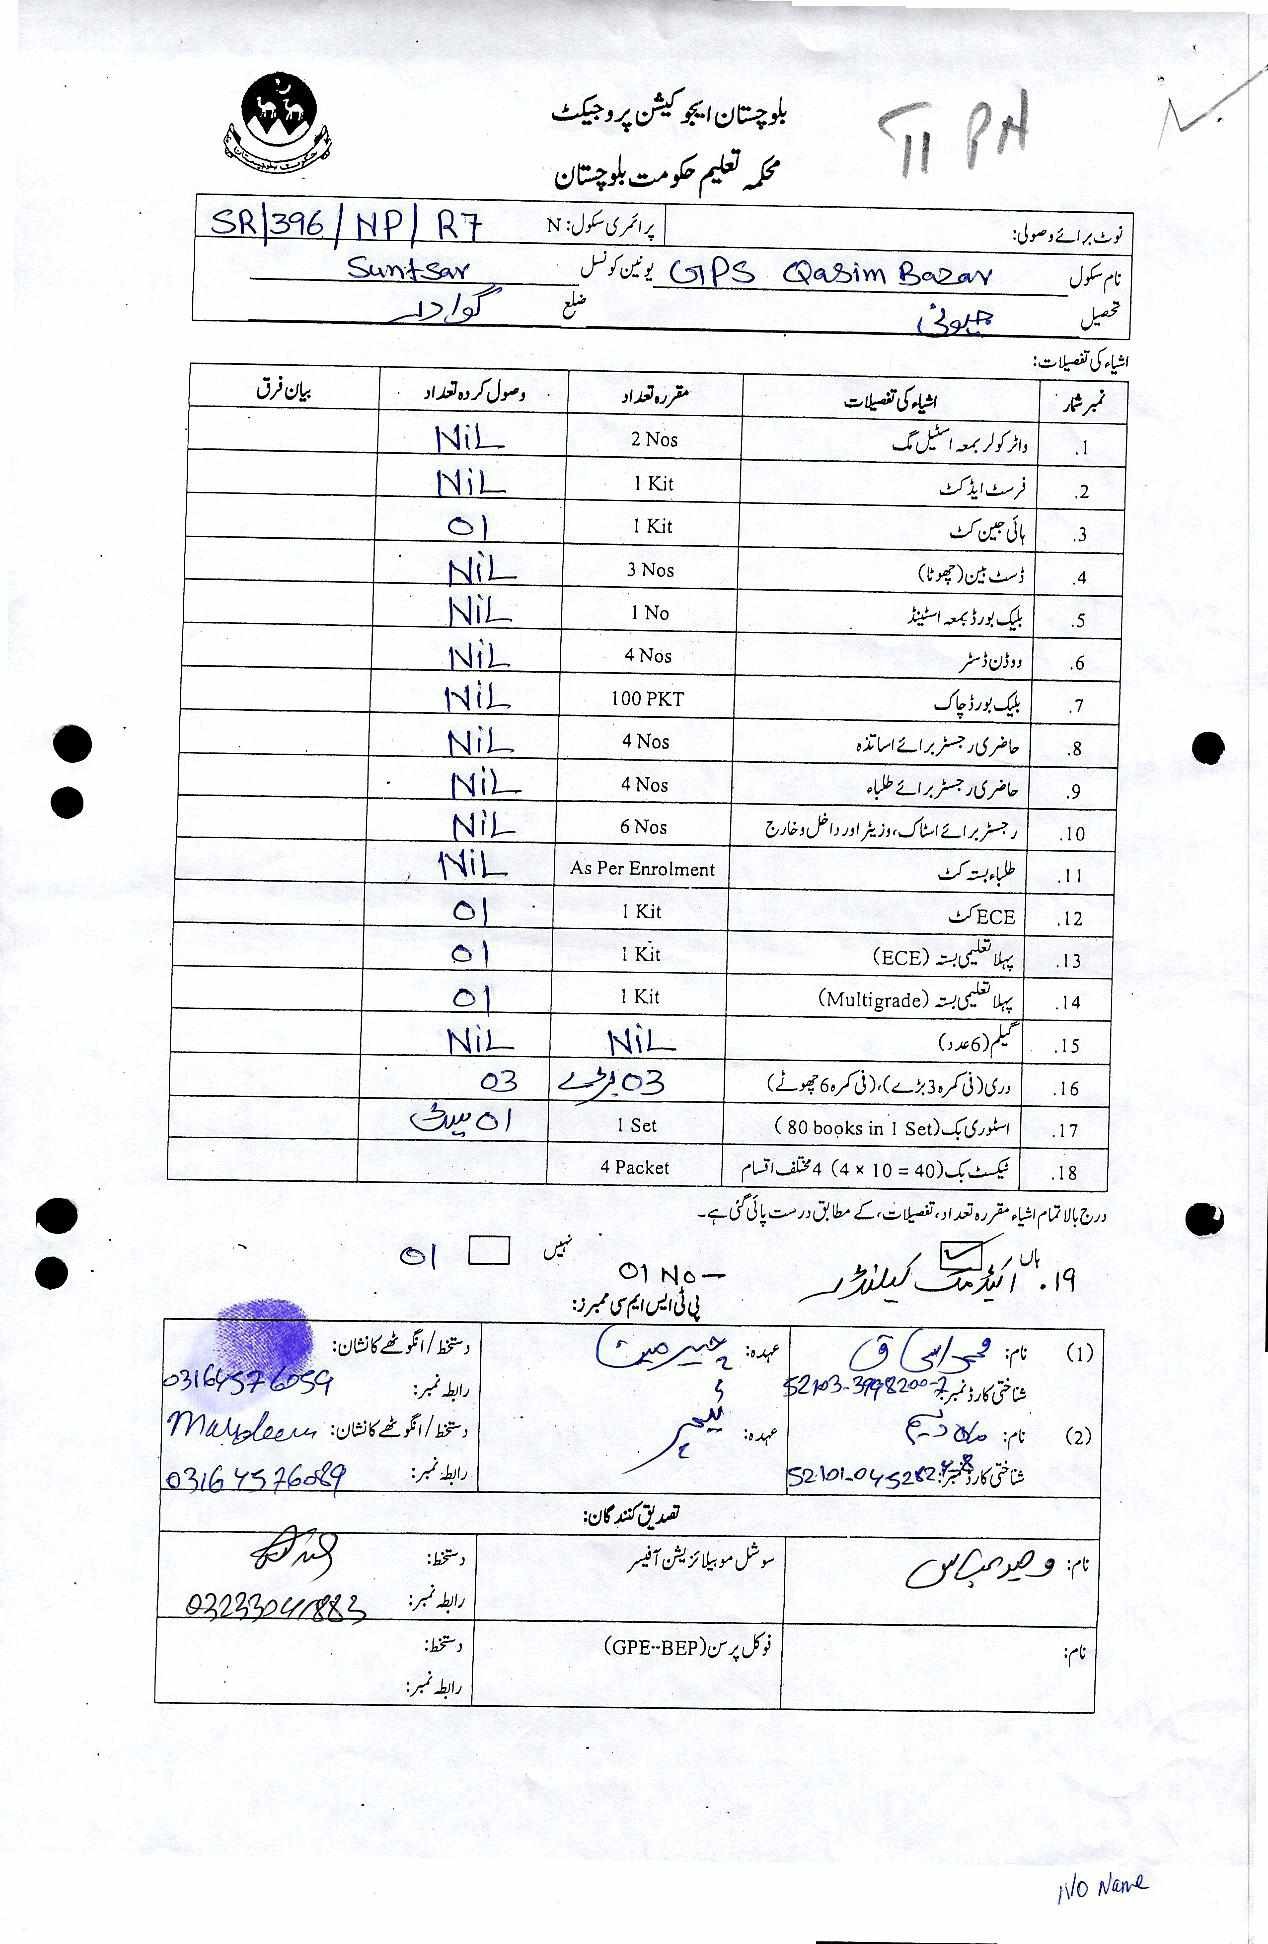 بلوچستان ایجوکیشن پروجیکٹ
T II PH
محکمہ تعلیم حکومت بلوچستان
حکومت بلوچستان
نوٹ برائے وصولی: پرائمری سکول: N SR/396/NP/R7
نام سکول GPS Qasim Bazar یونین کونسل Suntsar
تحصیل جیونی ضلع گوادر
اشیاء کی تفصیلات:
نمبر شمار اشیاء کی تفصیلات مقررہ تعداد وصول کردہ تعداد بیان فرق
1. واٹر کولر بمعہ اسٹیل مگ 2 Nos NiL
2. فرسٹ ایڈ کٹ 1 Kit NiL
3. ہائی جین کٹ 1 Kit 01
4. ڈسٹ بین (چھوٹا) 3 Nos NiL
5. بلیک بورڈ بمعہ اسٹینڈ 1 No NiL
6. ووڈن ڈسٹر 4 Nos NiL
7. بلیک بورڈ چاک 100 PKT NiL
8. حاضری رجسٹر برائے اساتذہ 4 Nos NiL
9. حاضری رجسٹر برائے طلباء 4 Nos NiL
10. رجسٹر برائے اسٹاک، وزیٹر اور داخل و خارج 6 Nos NiL
11. طلباء بستہ کٹ As Per Enrolment NiL
12. ECE کٹ 1 Kit 01
13. پہلا تعلیمی بستہ (ECE) 1 Kit 01
14. پہلا تعلیمی بستہ (Multigrade) 1 Kit 01
15. گیلم (6 عدد) NiL NiL
16. دری (فی کمرہ 3 بڑے)، (فی کمرہ 6 چھوٹے) 03 بڑے 03
17. اسٹوری بک (80 books in 1 Set) 1 Set 01 سیٹ
18. ٹیکسٹ بک (4 × 10 = 40) 4 مختلف اقسام 4 Packet
درج بالا تمام اشیاء مقررہ تعداد، تفصیلات، کے مطابق درست پائی گئی ہے۔
ہاں نہیں
19. اکیڈمک کیلنڈر 01 No — 01
پی ٹی ایس ایم سی ممبرز:
(1) نام: محمد اسحاق عہدہ: چیئرمین دستخط / انگوٹھے کا نشان:
شناختی کارڈ نمبر: 52103-3998200-7 رابطہ نمبر: 03164576059
(2) نام: عہدہ: ٹیچر دستخط / انگوٹھے کا نشان:
شناختی کارڈ نمبر: رابطہ نمبر: 03164576089
تصدیق کنندگان:
نام: سوشل موبیلائزیشن آفیسر دستخط:
رابطہ نمبر: 03233041883
نام: فوکل پرسن (GPE--BEP) دستخط:
رابطہ نمبر:
No Name